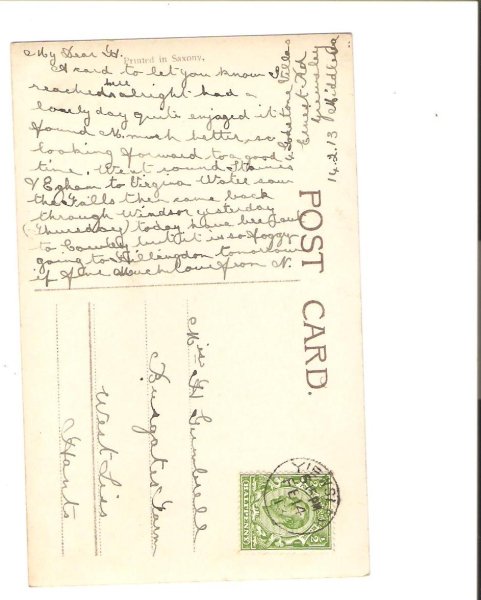 Printed in Saxony.
My Dear H.
A card to let you know I
reached here alright had a
lovely day quite enjoyed it
found N. much better, so
looking forward to a good
time. Went round Staines
& Egham to Virginia Water saw
the Falls then came back
through Windsor yesterday
(Thursday) today have been
to Cowley but it is so foggy
going to Hillingdon tomorrow
if fine Much love from N.
4 Godstone Villas
Ernest Rd
Middlesex
14.2.13
POST CARD.
Miss H
Farm
West Liss
Hants
FE 14
HALFPENNY